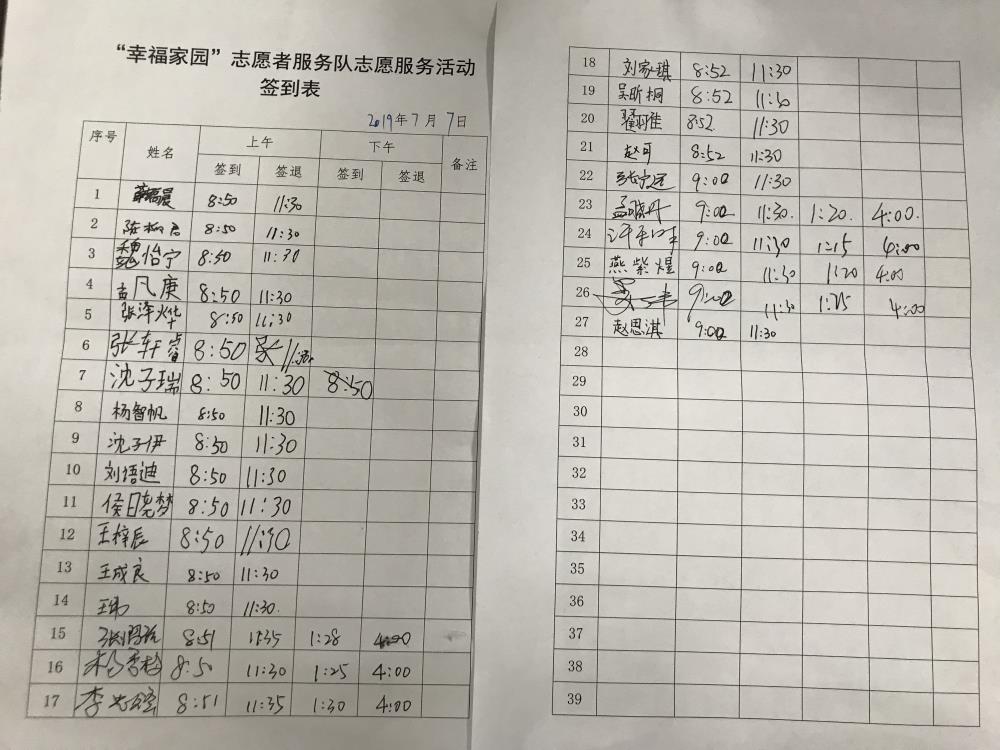 “幸福家园”志愿者服务队志愿服务活动
签到表
2019年7月7日
序号 姓名 上午 下午 备注
签到 签退 签到 签退
1 8:50 11:30
2 8:50 11:30
3 魏怡宁 8:50 11:30
4 孟凡庚 8:50 11:30
5 张泽烨 8:50 11:30
6 张轩睿 8:50 11:30
7 沈子瑞 8:50 11:30 8:50
8 杨智帆 8:50 11:30
9 沈子伊 8:50 11:30
10 刘语迪 8:50 11:30
11 侯晓梦 8:50 11:30
12 王梓辰 8:50 11:30
13 王成良 8:50 11:30
14 8:50 11:30.
15 8:51 11:35 1:28 4:00
16 8:50 11:30 1:25 4:00
17 李 8:51 11:35 1:30 4:00
18 刘家琪 8:52 11:30
19 吴昕桐 8:52 11:30
20 翟羽佳 8:52 11:30
21 赵可 8:52 11:30
22 张宁远 9:00 11:30
23 孟晓丹 9:00 11:30. 1:20. 4:00.
24 9:00 11:30 1:15 4:00
25 燕紫煌 9:00 11:30 1:20 4:00
26 9:00 11:30 1:25 4:00
27 赵思淇 9:00 11:30
28
29
30
31
32
33
34
35
36
37
38
39